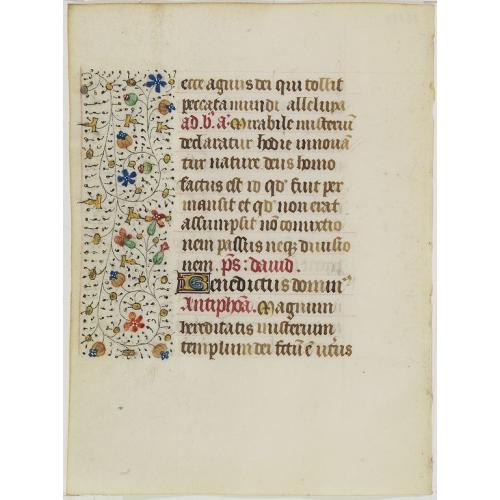 ecce agnus dei qui tollit
peccata mundi alleluya
ad. b. a. Mirabile misteriū
declaratur hodie innouā
tur nature deus homo
factus est id qd' fuit per
mansit et qd' non erat
assumpsit nō conmixtio
nem passus neqz diuisio
nem. p̄s: dauid.
Benedictus domin9
Antiphōa. Magnum
hereditatis misterium
templum dei fctū ē vt'us